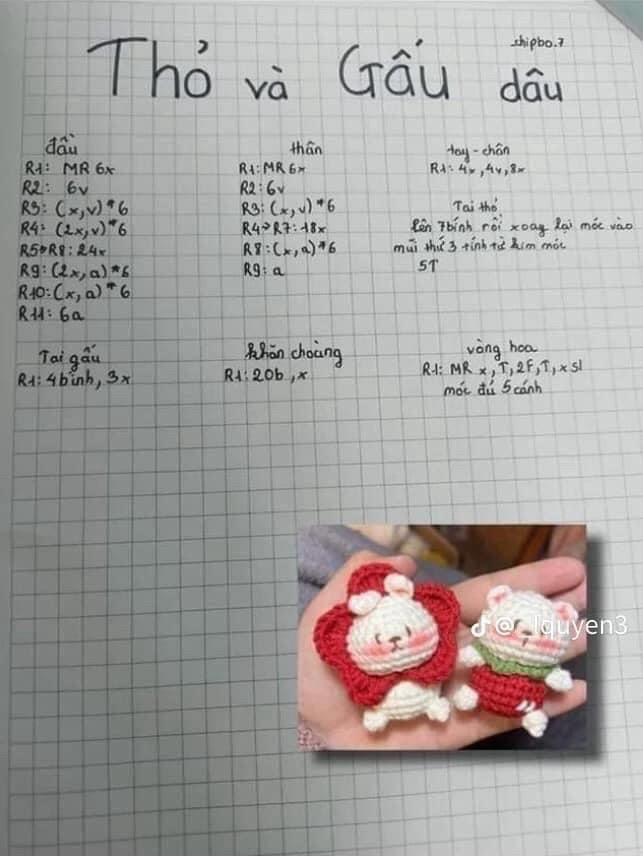 shipbo.7
Thỏ và Gấu dâu
đầu
R1: MR 6x
R2: 6v
R3: (x,v)*6
R4: (2x,v)*6
R5→R8: 24x
R9: (2x,a)*6
R10: (x,a)*6
R11: 6a
thân
R1: MR 6x
R2: 6v
R3: (x,v)*6
R4→R7: 18x
R8: (x,a)*6
R9: a
tay-chân
R1: 4x,4v,8x
Tai thỏ
lên 7bính rồi xoay lại móc vào
mũi thứ 3 tính từ kim móc
5T
Tai gấu
R1: 4bính, 3x
khăn choàng
R1: 20b, x
vòng hoa
R1: MR x, T, 2F, T, x sl
móc đủ 5 cánh
@_lquyen3